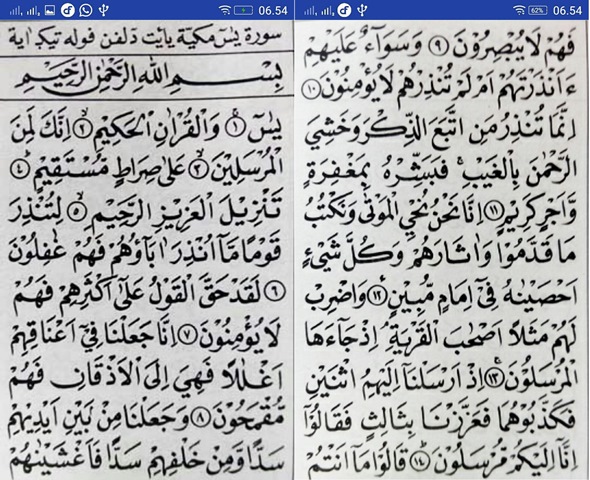 06.54
سورة يسٓ مكيّة يايت دلفن فوله تيك اية
بِسْمِ اللهِ الرَّحْمٰنِ الرَّحِيْمِ
يٰسٓ ۝١ وَالْقُرْاٰنِ الْحَكِيْمِ ۝٢ اِنَّكَ لَمِنَ
الْمُرْسَلِيْنَ ۝٣ عَلٰى صِرَاطٍ مُّسْتَقِيْمٍ ۝٤
تَنْزِيْلَ الْعَزِيْزِ الرَّحِيْمِ ۝٥ لِتُنْذِرَ
قَوْمًا مَّآ اُنْذِرَ اٰبَآؤُهُمْ فَهُمْ غٰفِلُوْنَ
۝٦ لَقَدْ حَقَّ الْقَوْلُ عَلٰٓى اَكْثَرِهِمْ فَهُمْ
لَا يُؤْمِنُوْنَ ۝٧ اِنَّا جَعَلْنَا فِيْٓ اَعْنَاقِهِمْ
اَغْلٰلًا فَهِيَ اِلَى الْاَذْقَانِ فَهُمْ
مُّقْمَحُوْنَ ۝٨ وَجَعَلْنَا مِنْۢ بَيْنِ اَيْدِيْهِمْ
سَدًّا وَّمِنْ خَلْفِهِمْ سَدًّا فَاَغْشَيْنٰهُمْ
62% 06.54
فَهُمْ لَا يُبْصِرُوْنَ ۝٩ وَسَوَآءٌ عَلَيْهِمْ
ءَاَنْذَرْتَهُمْ اَمْ لَمْ تُنْذِرْهُمْ لَا يُؤْمِنُوْنَ ۝١٠
اِنَّمَا تُنْذِرُ مَنِ اتَّبَعَ الذِّكْرَ وَخَشِيَ
الرَّحْمٰنَ بِالْغَيْبِ فَبَشِّرْهُ بِمَغْفِرَةٍ
وَّاَجْرٍ كَرِيْمٍ ۝١١ اِنَّا نَحْنُ نُحْيِ الْمَوْتٰى وَنَكْتُبُ
مَا قَدَّمُوْا وَاٰثَارَهُمْ وَكُلَّ شَيْءٍ
اَحْصَيْنٰهُ فِيْٓ اِمَامٍ مُّبِيْنٍ ۝١٢ وَاضْرِبْ
لَهُمْ مَّثَلًا اَصْحٰبَ الْقَرْيَةِ اِذْ جَآءَهَا
الْمُرْسَلُوْنَ ۝١٣ اِذْ اَرْسَلْنَآ اِلَيْهِمُ اثْنَيْنِ
فَكَذَّبُوْهُمَا فَعَزَّزْنَا بِثَالِثٍ فَقَالُوْٓا
اِنَّآ اِلَيْكُمْ مُّرْسَلُوْنَ ۝١٤ قَالُوْا مَآ اَنْتُمْ